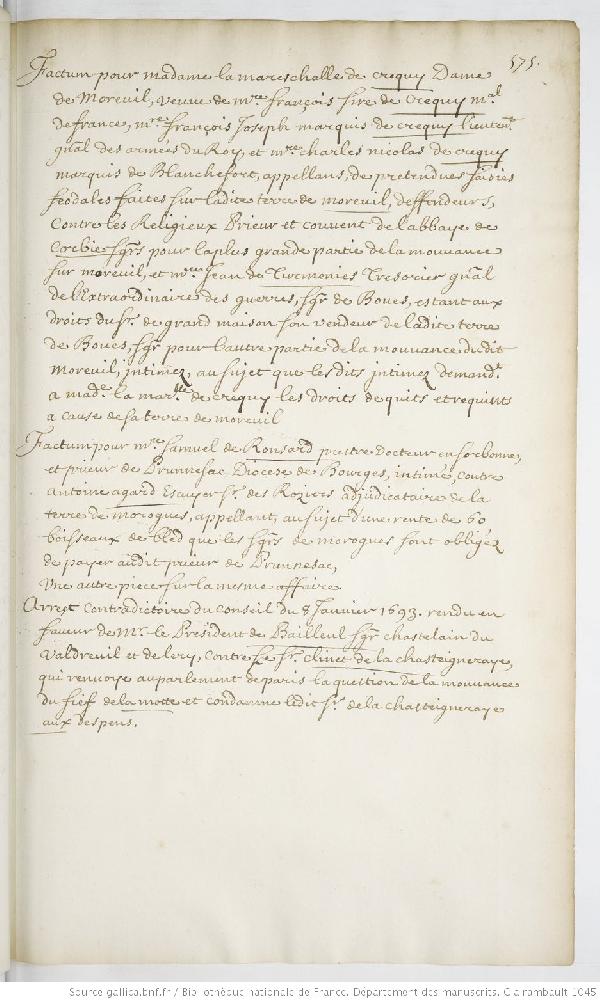 575.
Factum pour madame la mareschalle de crequy Dame
de Moreuil, veuve de mre. françois sire de Crequy mal.
de france, mre. françois Joseph marquis de crequy lieutent.
gnal des armées du Roy, et mre. charles nicolas de crequy
marquis de Blanchefort, appellans, de pretendues saisies
feodales faites sur ladite terre de moreuil, deffendeurs,
Contre les Religieux Prieur et couvent de l'abbaye de
Corbie sgrs pour la plus grande partie de la mouvance
sur moreuil, et mre Jean de Turmenies Tresorier gnal
de l'Extraordinaire des guerres, sgr de Boues, estant aux
droits du sr. de grand maison son vendeur de ladite terre
de Boues, sgr pour l'autre partie de la mouvance dudit
Moreuil, intimez, au sujet que lesdits intimez demandt.
a made. la marlle de crequy les droits de quits et requints
a cause de sa terre de moreuil
Factum pour mre Samuel de Ronsard prestre docteur en sorbonne,
et prieur de Prunnesac Diocese de Bourges, intimé, contre
antoine agard Escuyer sr. des Roziers adjudicataire de la
terre de morogues, appellant, au sujet d'une rente de 60
boisseaux de bled que les sgrs de morogues sont obligez
de payer audit prieur de Prunnesac,
Une autre piece sur la mesme affaire
Arrest Contradictoire du Conseil du 8 Janvier 1693. rendu en
faveur de Mr. le President de Bailleul sgr chastelain du
Valdreuil et de lery, contre Le sr. clinet de la chasteigneraye,
qui renvoye au parlement de paris la question de la mouvance
du fief de la motte et condamne ledit sr. de la chasteigneraye
aux despens.
Source gallica.bnf.fr / Bibliothèque nationale de France. Département des manuscrits. Clairambault 1045